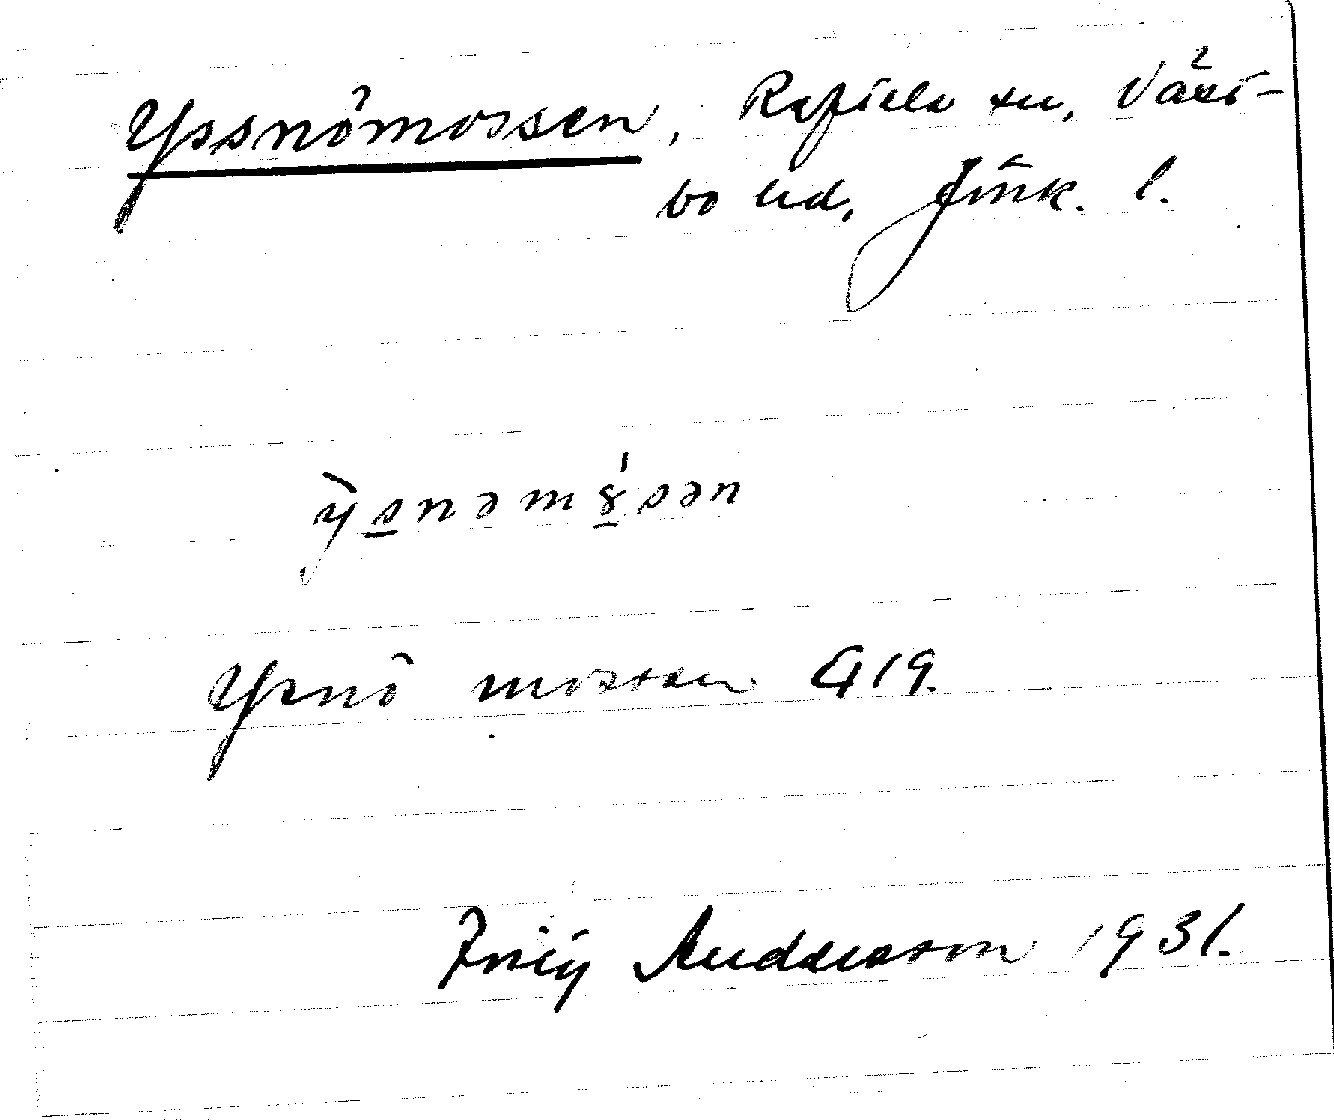 Yssnömossen, Reftele sn, Väst-
bo hd, Jönk. l.
ỳsnəmɤ̀sən
Ysnö mossen G 19.
Friij Andersson 1931.